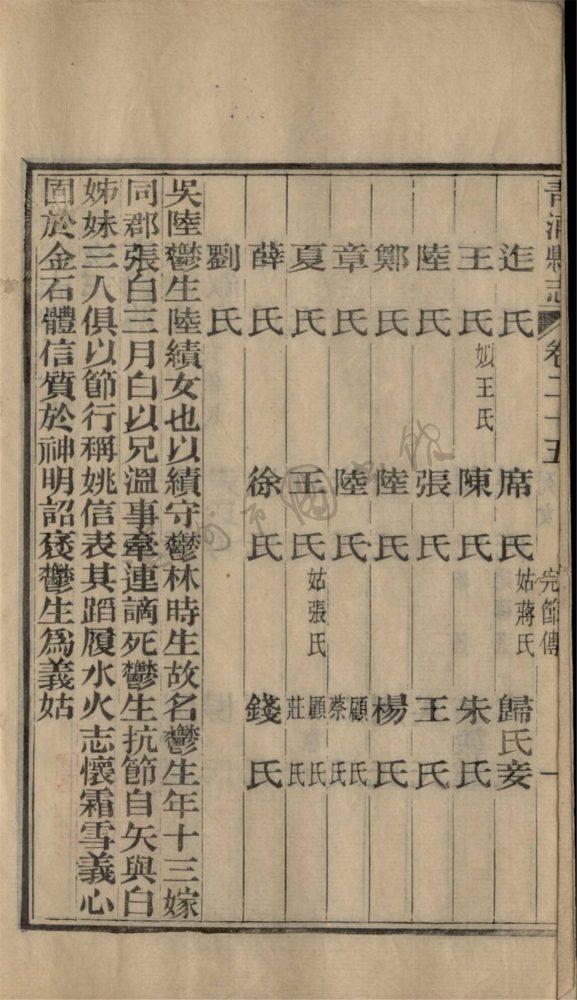 青浦縣志 卷二十五 完節傳 一
迮氏 席氏 姑蔣氏 歸氏妾
王氏 姒王氏 陳氏 朱氏
陸氏 張氏 王氏
鄭氏 陸氏 楊氏
章氏 陸氏 顧氏 蔡氏
夏氏 王氏 姑張氏 顧氏 莊氏
薛氏 徐氏 錢氏
劉氏
吳陸欝生陸績女也以績守欝林時生故名欝生年十三嫁
同郡張白三月白以兄溫事牽連謫死欝生抗節自矢與白
姊妹三人俱以節行稱姚信表其蹈履水火志懷霜雪義心
固於金石體信質於神明詔襃欝生爲義姑